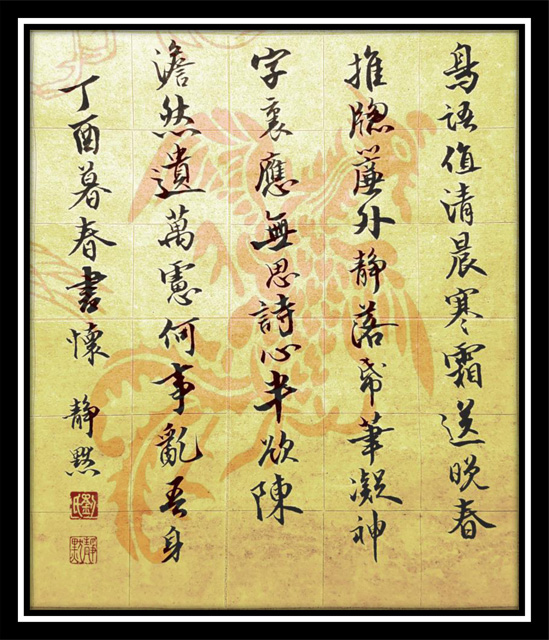 鳥語值清晨寒霜送晚春
推牕簾外静落帋筆凝神
字裏應無思詩心半欲陳
澹然遺萬慮何事亂吾身
丁酉暮春書懷 静默
劉氏